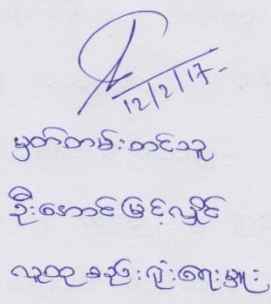 12/2/17-
မှတ်တမ်းတင်သူ
ဦးအောင်မြင့်လှိုင်
လူထုစည်းရုံးရေးမှူး